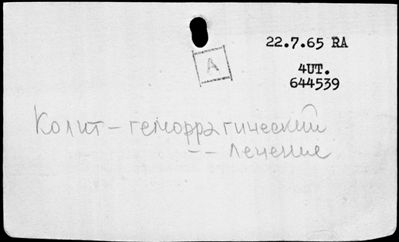 22.7.65 RA
A
4UT.
644539
Колит - геморрагический
-- лечение